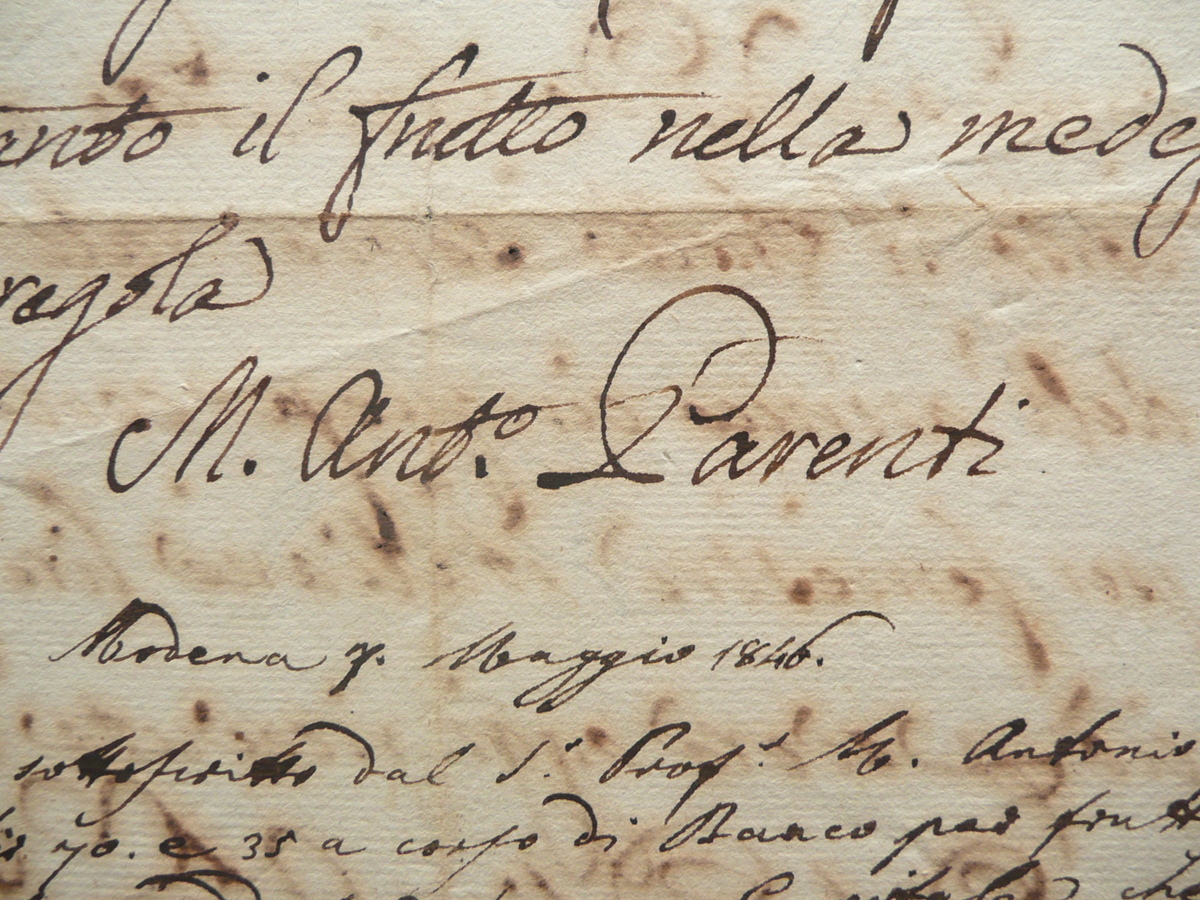 anto il frutto nella medeg
regola
M. Ant.º Parenti
Modena 7. Maggio 1846.
sottoscritto dal S.r Prof.r M. Antonio
70. e 35 a corso di Banco per frutt
che